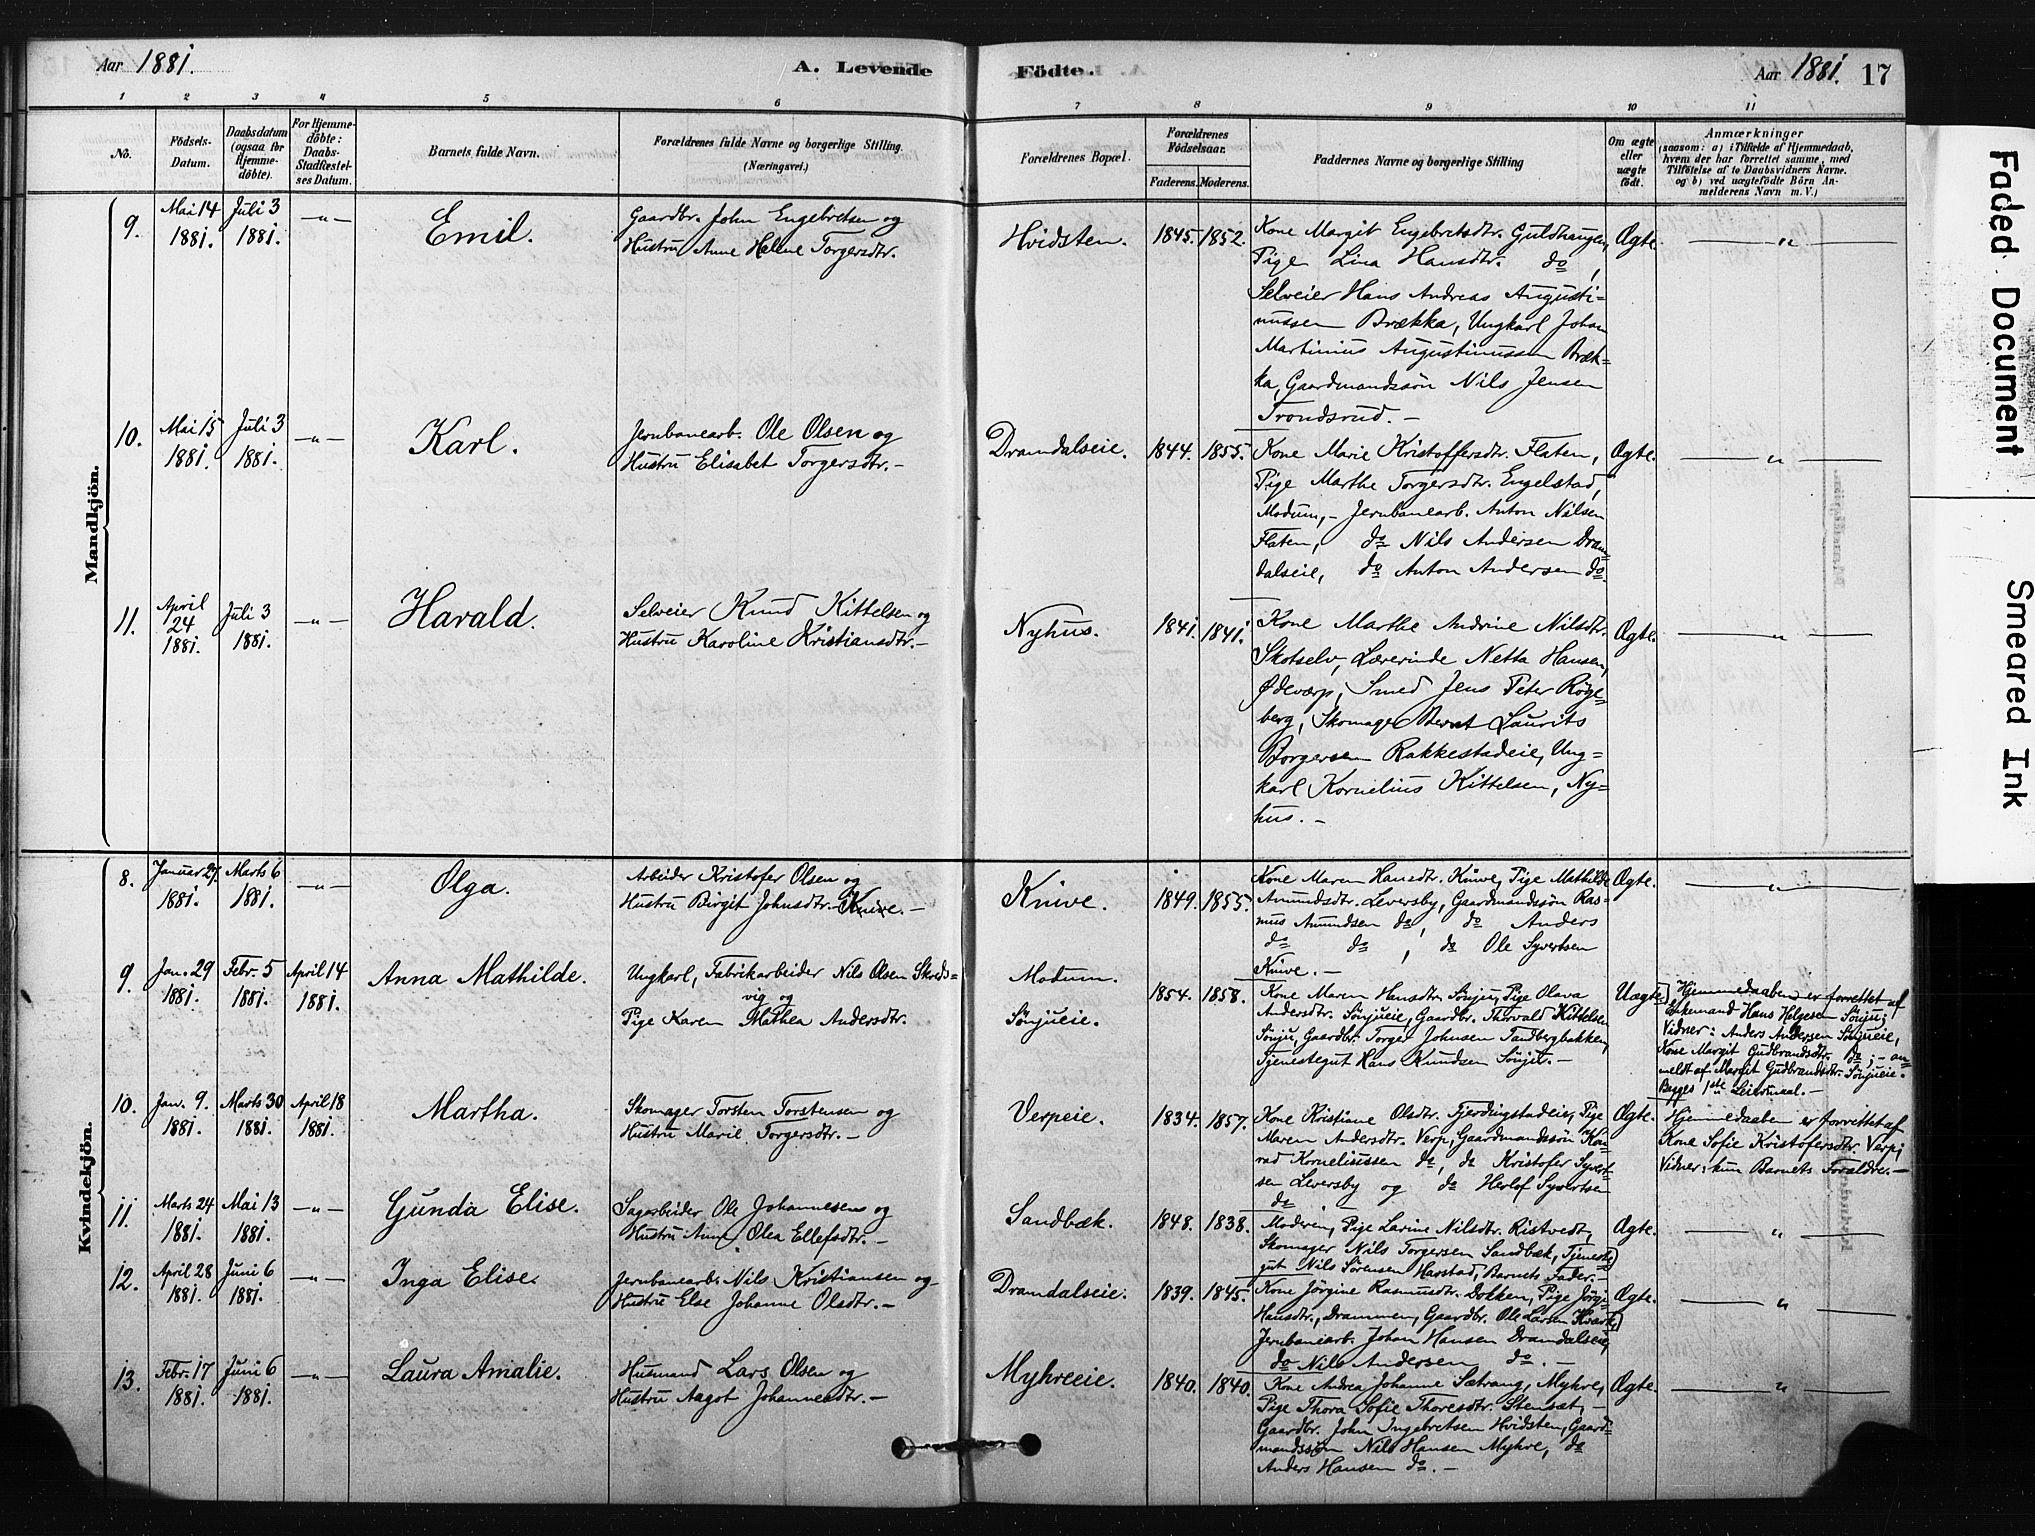 Aar 1881.
A. Levende
Födte.
Aar 1881. 17
1 2 3 4 5 6 7 8 9 10 11
No.
Födsels-
Datum.
Daabsdatum
(ogsaa for
Hjemme-
döbte).
For Hjemme-
döbte:
Daabs-
Stadfæstel-
ses Datum.
Barnets fulde Navn.
Forældrenes fulde Navne og borgerlige Stilling.
(Næringsvei.)
Forældrenes Bopæl.
Forældrenes
Födselsaar.
Faderens. Moderens.
Faddernes Navne og borgerlige Stilling
Om ægte
eller
uægte
födt.
Anmærkninger
(saasom: a) i Tilfælde af Hjemmedaab,
hvem der har forrettet samme, med
Tilföielse af to Daabsvidners Navne.
og b) ved uægtefödte Börn An-
melderens Navn m. V.)
Mandkjön.
9.
Mai 14
1881.
Juli 3
1881.
-"-
Emil.
Gaardbr. John Engebretsen og
Hustru Anne Helene Torgersdtr.
Hvidsten.
1845. 1852.
Kone Margit Engebretsdtr. Guldhaugen,
Pige Lina Hansdtr. do,
Selveier Hans Andreas Augusti=
nussen Brækka, Ungkarl Johan
Martinius Augustinussen Bræk=
ka, Gaardmandssön Nils Jensen
Trondsrud. -
Ægte.
— " —
10.
Mai 15
1881.
Juli 3
1881.
-"-
Karl.
Jernbanearb. Ole Olsen og
Hustru Elisabet Torgersdtr. -
Dramdalseie.
1844. 1855.
Kone Marie Kristoffersdtr. Flaten,
Pige Marthe Torgersdtr. Engelstad,
Modum, - Jernbanearb. Anton Nilsen
Flaten, do Nils Andersen Dram=
dalseie, do Anton Andersen do
Ægte.
— " —
11.
April
24
1881.
Juli 3
1881.
-"-
Harald.
Selveier Knud Kittelsen og
Hustru Karoline Kristiansdtr. -
Nyhus.
1841. 1841.
Kone Marthe Andrine Nilsdtr.
Skotselv, Lærerinde Netta Hansen,
Ødeværp, Smed Jens Peter Röge=
berg, Skomager Bernt Laurits
Borgersen Rakkestadeie, Ung=
karl Kornelius Kittelsen, Ny=
hus. -
Ægte.
— " —
Kvindekjön.
8.
Januar 27.
1881.
Marts 6
1881.
-"-
Olga.
Arbeider Kristofer Olsen og
Hustru Birgit Johnsdtr. Knive. -
Knive.
1849. 1855.
Kone Maren Hansdtr. Knive, Pige Mathilde
Amundsdtr. Leversby, Gaardmandssön Ras=
mus Amundsen do, do Anders
do do, do Ole Syvertsen
Knive. -
Ægte.
— " —
9.
Jan. 29
1881.
Febr. 5
1881.
April 14
1881.
Anna Mathilde.
Ungkarl, Fabrikarbeider Nils Olsen Skreds=
vig og
Pige Karen Mathea Andersdtr.
Modum.
Sönjueie.
1854. 1858.
Kone Maren Hansdtr. Sönju, Pige Olava
Andersdtr. Sönjueie, Gaardbr. Thorvald Kittelsen
Sönju, Gaardbr. Torger Johnsen Tandbergbakken,
Tjenestegut Hans Knudsen Sönju. -
Uægte.
Hjemmedaaben er forrettet af
Enkemand Hans Helgesen Sönju;
Vidner: Anders Andersen Sönjueie,
Kone Margit Gudbrandsdtr. do; - an=
meldt af Margit Gudbrandsdtr. Sönjueie.
Begges 1ste Leiermaal. -
10.
Jan. 9.
1881.
Marts 30
1881.
April 18
1881.
Martha.
Skomager Torsten Torstensen og
Hustru Marie Torgersdtr. -
Verpeie.
1834. 1857.
Kone Kristiane Olsdtr. Gjerdingstadeie, Pige
Maren Andersdtr. Verp, Gaardmandssön Kon=
rad Korneliussen do, do Kristofer Syvert=
sen Leversby og do Herlof Syvertsen
do
Ægte.
Hjemmedaaben er forrettet af
Kone Sofie Kristofersdtr. Verp;
Vidner: kun Barnets Forældre. -
11.
Marts 24
1881.
Mai 13
1881.
-"-
Gunda Elise.
Sagarbeider Ole Johannesen og
Hustru Anne Olea Ellefsdtr. -
Sandbæk.
1848. 1838.
Moderen, Pige Larine Nilsdtr. Ristvedt,
Skomager Nils Torgersen Sandbæk, Tjeneste
gut Nils Sörensen Harstad, Barnets Fader. -
Ægte.
— " —
12.
April 28
1881.
Juni 6
1881.
-"-
Inga Elise.
Jernbanearb. Nils Kristiansen og
Hustru Else Johanne Olsdtr. -
Dramdalseie.
1839. 1845.
Kone Jörgine Rasmusdtr. Dokken, Pige Jörgine
Hansdtr., Drammen, Gaardbr. Ole Larsen
Jernbanearb. Johan Hansen Dramdalseie,
do Nils Andersen do. -
Ægte.
— " —
13.
Febr. 17
1881.
Juni 6
1881.
-"-
Laura Amalie.
Husmand Lars Olsen og
Hustru Aagot Johannesdtr. -
Myhreeie.
1840. 1840.
Kone Andrea Johanne Sætrang, Myhre,
Pige Thora Sofie Thoresdtr. Stensæt, -
Gaardbr. John Ingebretsen Hvidsten, Gaard=
mandssön Nils Hansen Myhre, do
Anders Hansen do. -
Ægte.
— " —
Faded Document
Smeared Ink